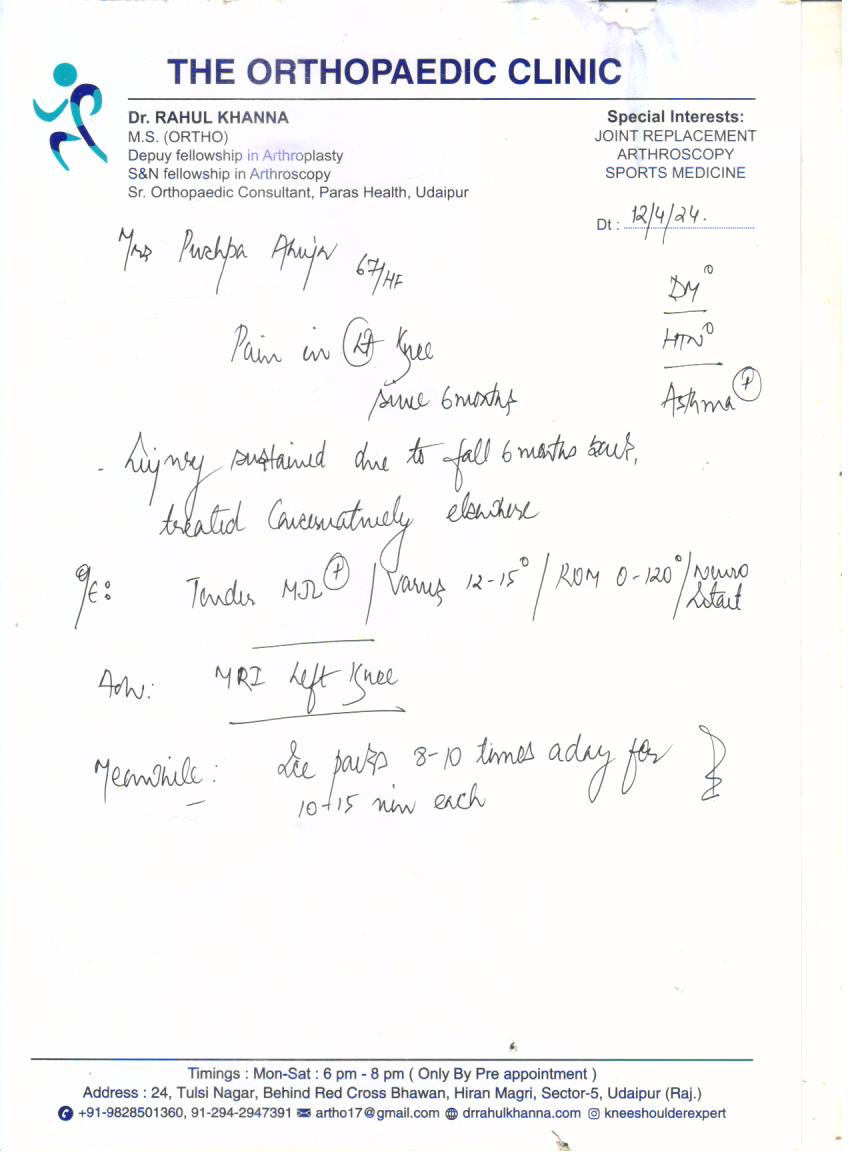 THE ORTHOPAEDIC CLINIC
Dr. RAHUL KHANNA
M.S. (ORTHO)
Depuy fellowship in Arthroplasty
S&N fellowship in Arthroscopy
Sr. Orthopaedic Consultant, Paras Health, Udaipur
Special Interests:
JOINT REPLACEMENT
ARTHROSCOPY
SPORTS MEDICINE
Dt : 12/4/24.
Mrs Pushpa Ahuja 67/
DM°
HTN°
Asthma +
Pain in Lt Knee
since 6 months
- Injury sustained due to fall 6 months back,
treated Conservatively elsewhere
O/E: Tender MJL + / Varus 12-15° / ROM 0-120° / Neuro
Intact
Adv: MRI Left Knee
Meanwhile: Ice packs 8-10 times a day for
10-15 min each
Timings : Mon-Sat : 6 pm - 8 pm ( Only By Pre appointment )
Address : 24, Tulsi Nagar, Behind Red Cross Bhawan, Hiran Magri, Sector-5, Udaipur (Raj.)
+91-9828501360, 91-294-2947391 artho17@gmail.com drrahulkhanna.com kneeshoulderexpert